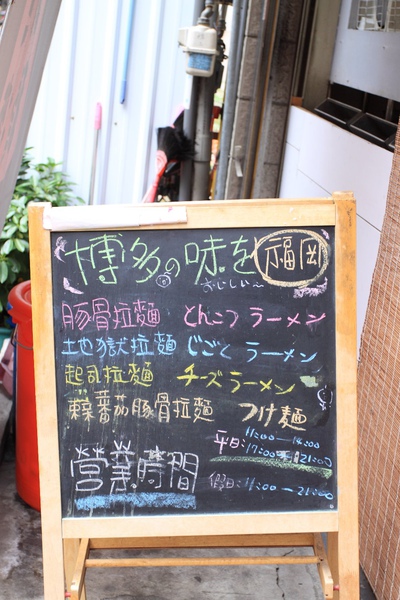 博多の味を 福岡
おいしい～
豚骨拉麵 とんこつ ラーメン
地獄拉麵 じごく ラーメン
起司拉麵 チーズラーメン
蕃茄豚骨拉麵 つけ麵
營業時間
平日:11:00—14:00
17:00—21:00
假日:11:00—21:00